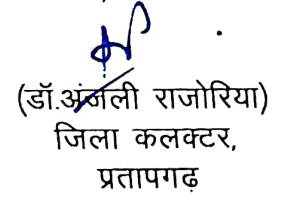 (डॉ.अंजली राजोरिया)
जिला कलक्टर,
प्रतापगढ़